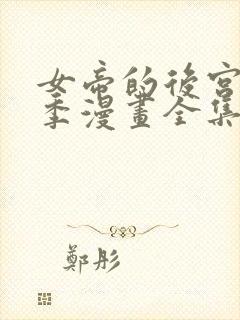 女帝的後宮
季漫畫全集
鄭彤